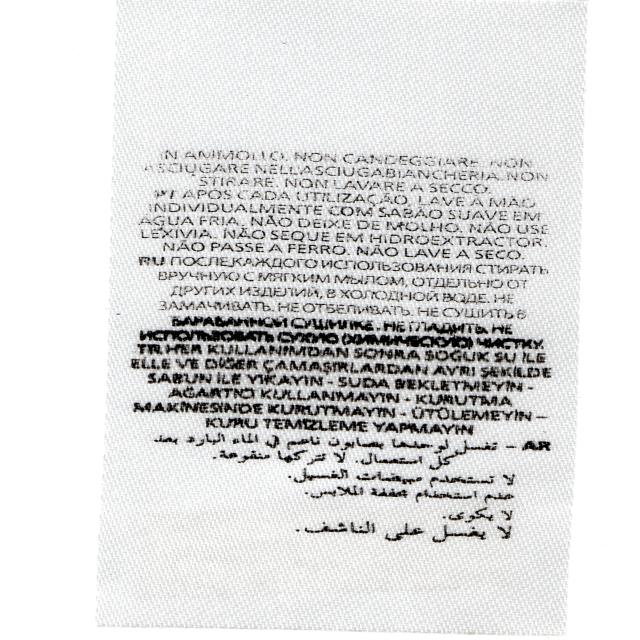 IN AMMOLLO. NON CANDEGGIARE. NON
ASCIUGARE NELLASCIUGABIANCHERIA. NON
STIRARE. NON LAVARE A SECCO.
PT APOS CADA UTILIZAÇÃO, LAVE A MÃO
INDIVIDUALMENTE COM SABÃO SUAVE EM
ÁGUA FRIA. NÃO DEIXE DE MOLHO. NÃO USE
LEXÍVIA. NÃO SEQUE EM HIDROEXTRACTOR.
NÃO PASSE A FERRO. NÃO LAVE A SECO.
RU ПОСЛЕ КАЖДОГО ИСПОЛЬЗОВАНИЯ СТИРАТЬ
ВРУЧНУЮ С МЯГКИМ МЫЛОМ, ОТДЕЛЬНО ОТ
ДРУГИХ ИЗДЕЛИЙ, В ХОЛОДНОЙ ВОДЕ. НЕ
ЗАМАЧИВАТЬ. НЕ ОТБЕЛИВАТЬ. НЕ СУШИТЬ В
БАРАБАННОЙ СУШИЛКЕ. НЕ ГЛАДИТЬ. НЕ
ИСПОЛЬЗОВАТЬ СУХУЮ (ХИМИЧЕСКУЮ) ЧИСТКУ.
TR HER KULLANIMDAN SONRA SOĞUK SU İLE
ELLE VE DİĞER ÇAMAŞIRLARDAN AYRI ŞEKİLDE
SABUN İLE YIKAYIN - SUDA BEKLETMEYİN -
AĞARTICI KULLANMAYIN - KURUTMA
MAKİNESİNDE KURUTMAYIN - ÜTÜLEMEYİN –
KURU TEMİZLEME YAPMAYIN
AR – تغسل لوحدها بصابون ناعم في الماء البارد بعد
كل استعمال. لا تتركها منقوعة.
لا تستخدم مبيضات الغسيل.
عدم استخدام مجففة الملابس.
لا يكوى.
لا يغسل على الناشف.